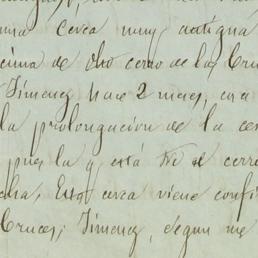 una cerca muy antigua
cima de dho cerro de las Cru
Jimenez hace 2 meses, era
la prolongacion de la cer
pues la q está en el cerro
dha, Esta cerca viene confi
Cruces; Jimenez, segun me